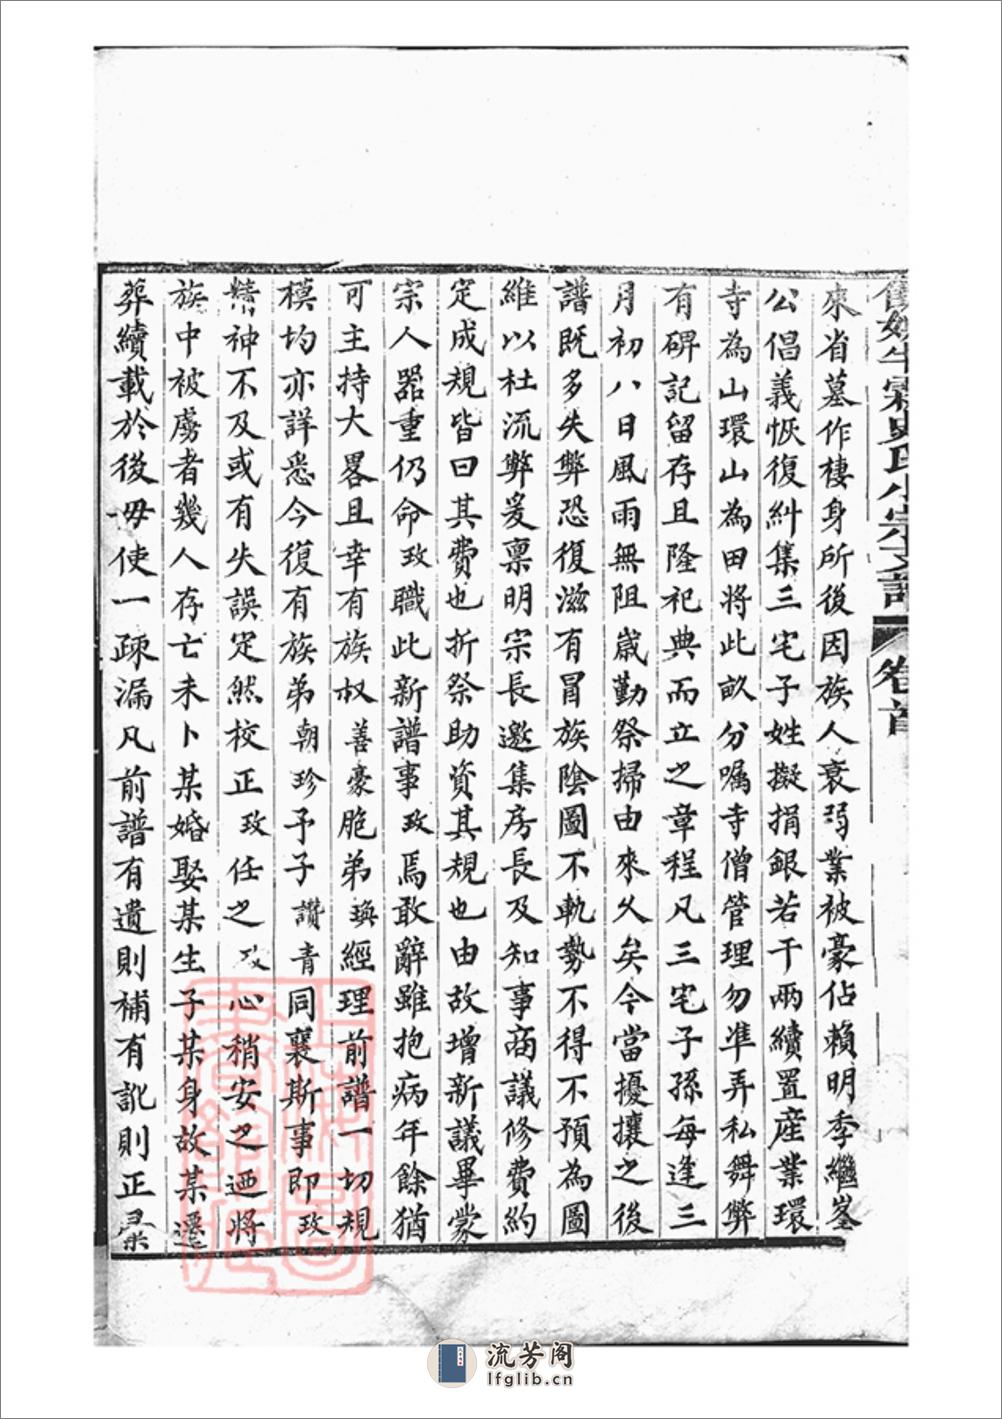 史氏小宗支譜 卷首
來省墓作棲身所後因族人衰弱業被豪佔賴明季繼峯
公倡義恢復糾集三宅子姓擬捐銀若干兩續置産業環
寺為山環山為田將此畝分囑寺僧管理勿準弄私舞弊
有碑記留存且隆祀典而立之章程凡三宅子孫每逢三
月初八日風雨無阻歲勤祭掃由來久矣今當擾攘之後
譜既多失弊恐復滋有冒族陰圖不軌勢不得不預為圖
維以杜流弊爰禀明宗長邀集房長及知事商議修費約
定成規皆曰其費也折祭助資其規也由故增新議畢蒙
宗人器重仍命玫職此新譜事玫焉敢辭雖抱病年餘猶
可主持大畧且幸有族叔善豪胞弟瑍經理前譜一切規
模均亦詳悉今復有族弟朝珍予子讚青同襄斯事即玫
精神不及或有失誤定然校正玫任之玫心稍安之迺將
族中被虜者幾人存亡未卜某婚娶某生子某身故某遷
葬續載於後毋使一疎漏凡前譜有遺則補有訛則正
流芳阁
lfglib.cn